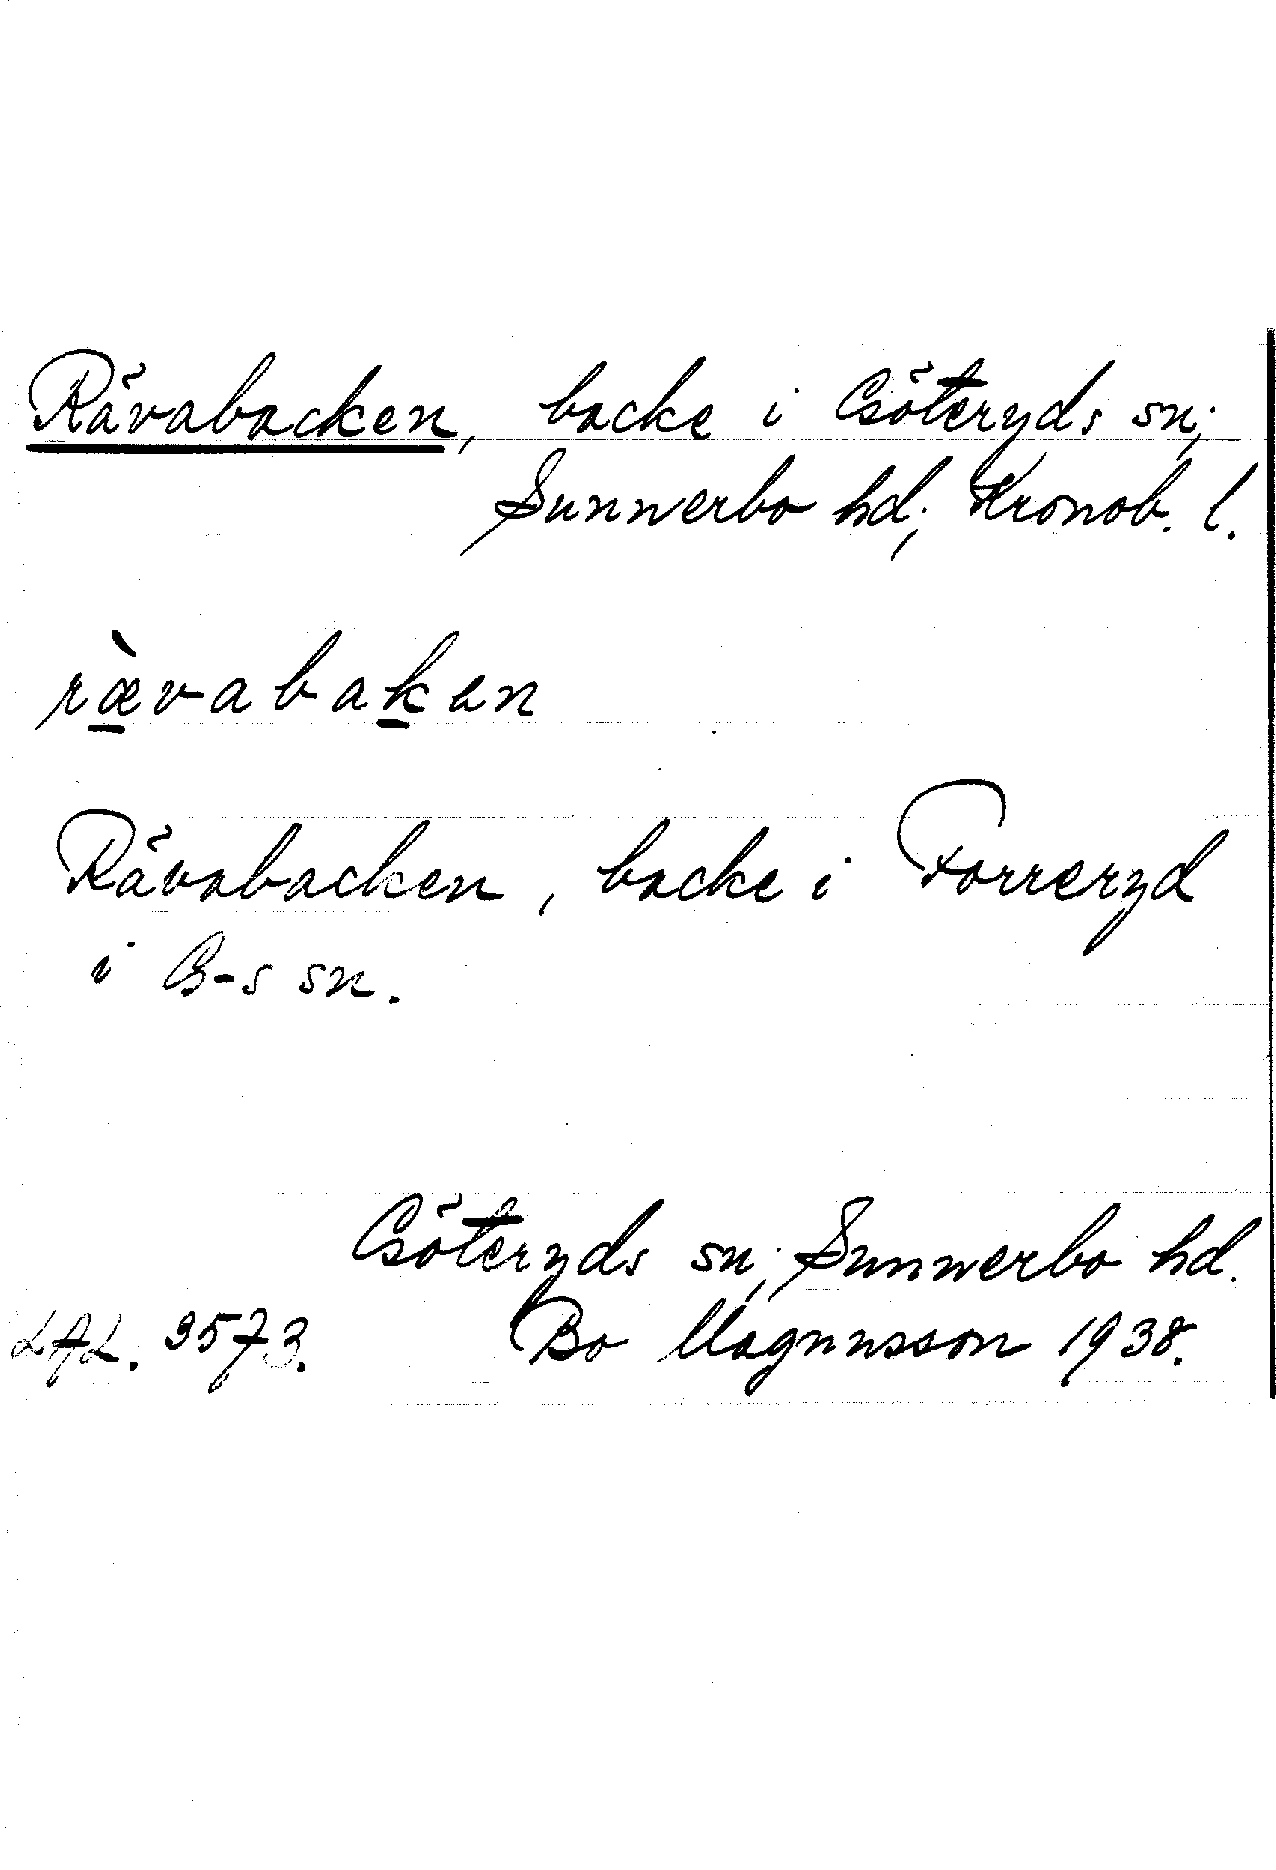 Rävabacken, backe i Göteryds sn;
Sunnerbo hd; Kronob. l.
ræ̀vabaken
Rävabacken, backe i Forreryd
i G-s sn.
Göteryds sn; Sunnerbo hd.
LAL. 3573. Bo Magnusson 1938.